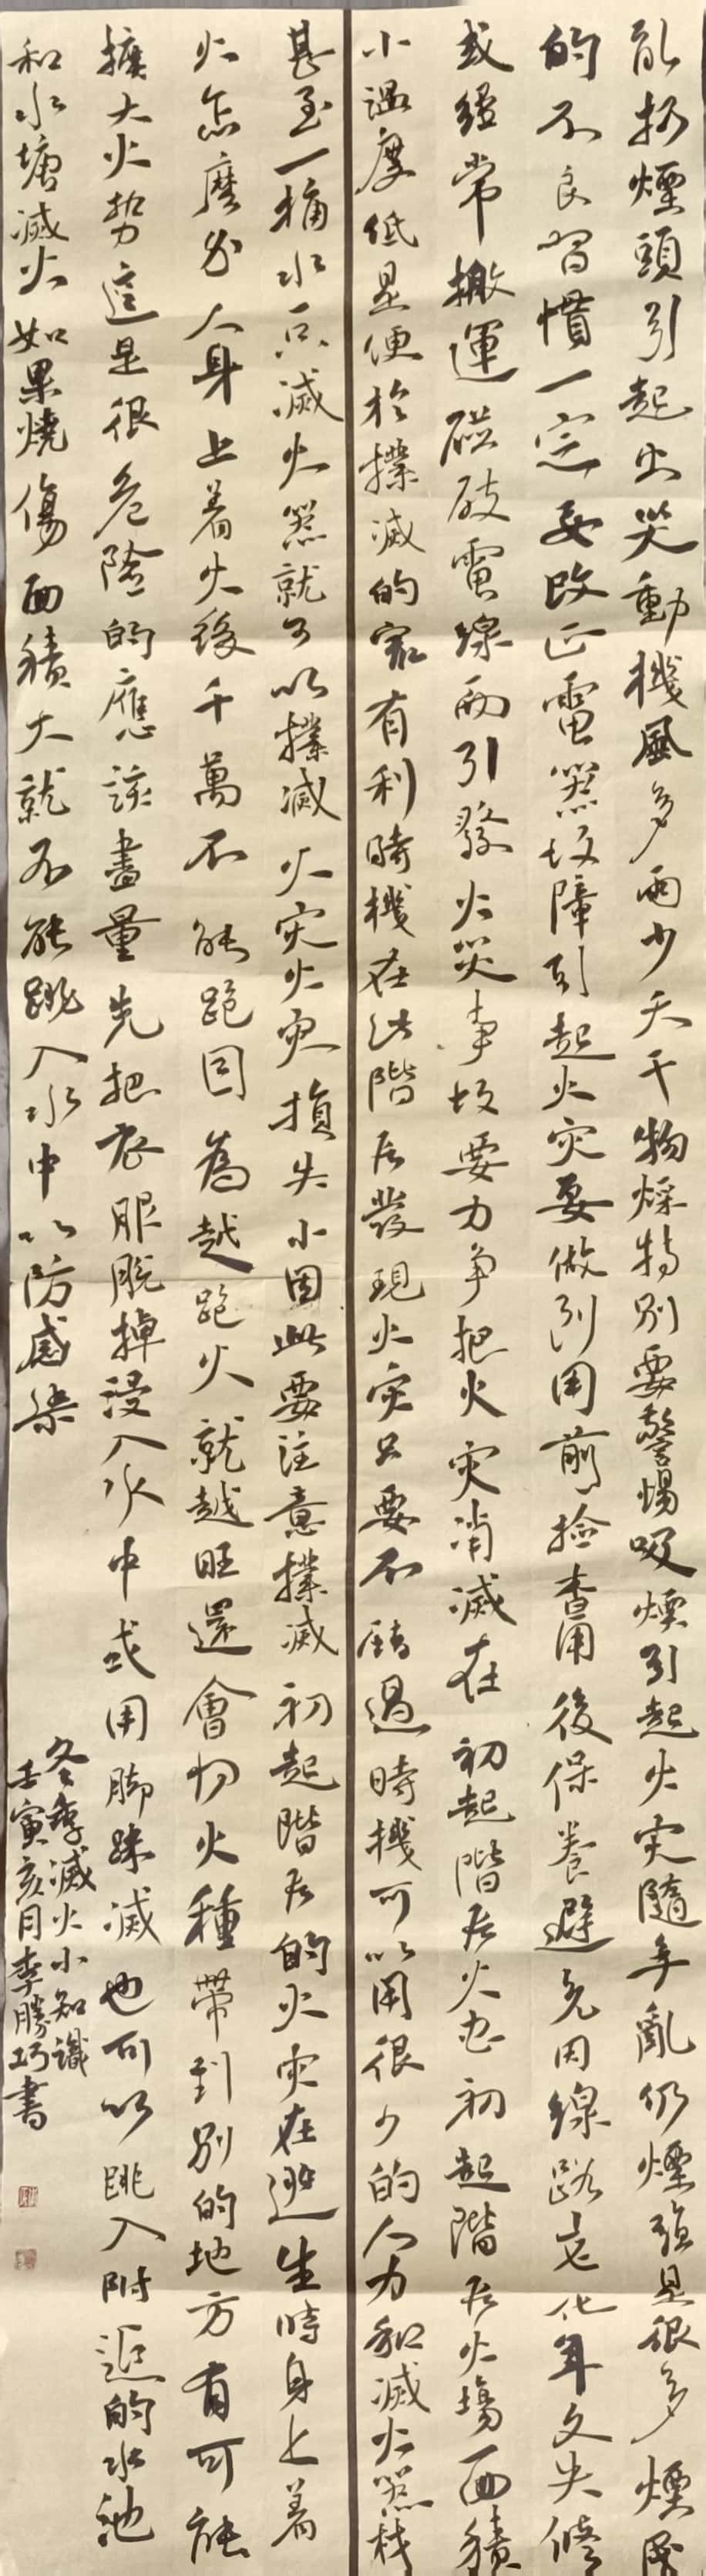 亂扔煙頭引起火災動機風多雨少天干物燥特別要警惕吸煙引起火灾隨手亂仍煙頭是很多煙民
的不良習慣一定要改正電器故障引起火灾要做到用前撿查用後保養避免因線路老化年久失修
或經常搬運磁破電線而引發火災事故要力争把火灾消滅在初起階段火在初起階段火場面積
小溫度低是便於撲滅的最有利時機在此階段發現火灾只要不錯過時機可以用很少的人力和滅火器材
甚至一桶水只滅火器就可以撲滅火灾火灾損失小因此要注意撲滅初起階段的火灾在逃生時身上着
火怎麼办人身上着火後千萬不能跑因為越跑火就越旺還會切火種帶到別的地方有可能
擴大火勢這是很危險的應該盡量先把衣服脫掉浸入水中或用脚踩滅也可以跳入附近的水池
和水塘滅火如果燒傷面積大就不能跳入水中以防感染
冬季滅火小知識
壬寅亥月李勝巧書